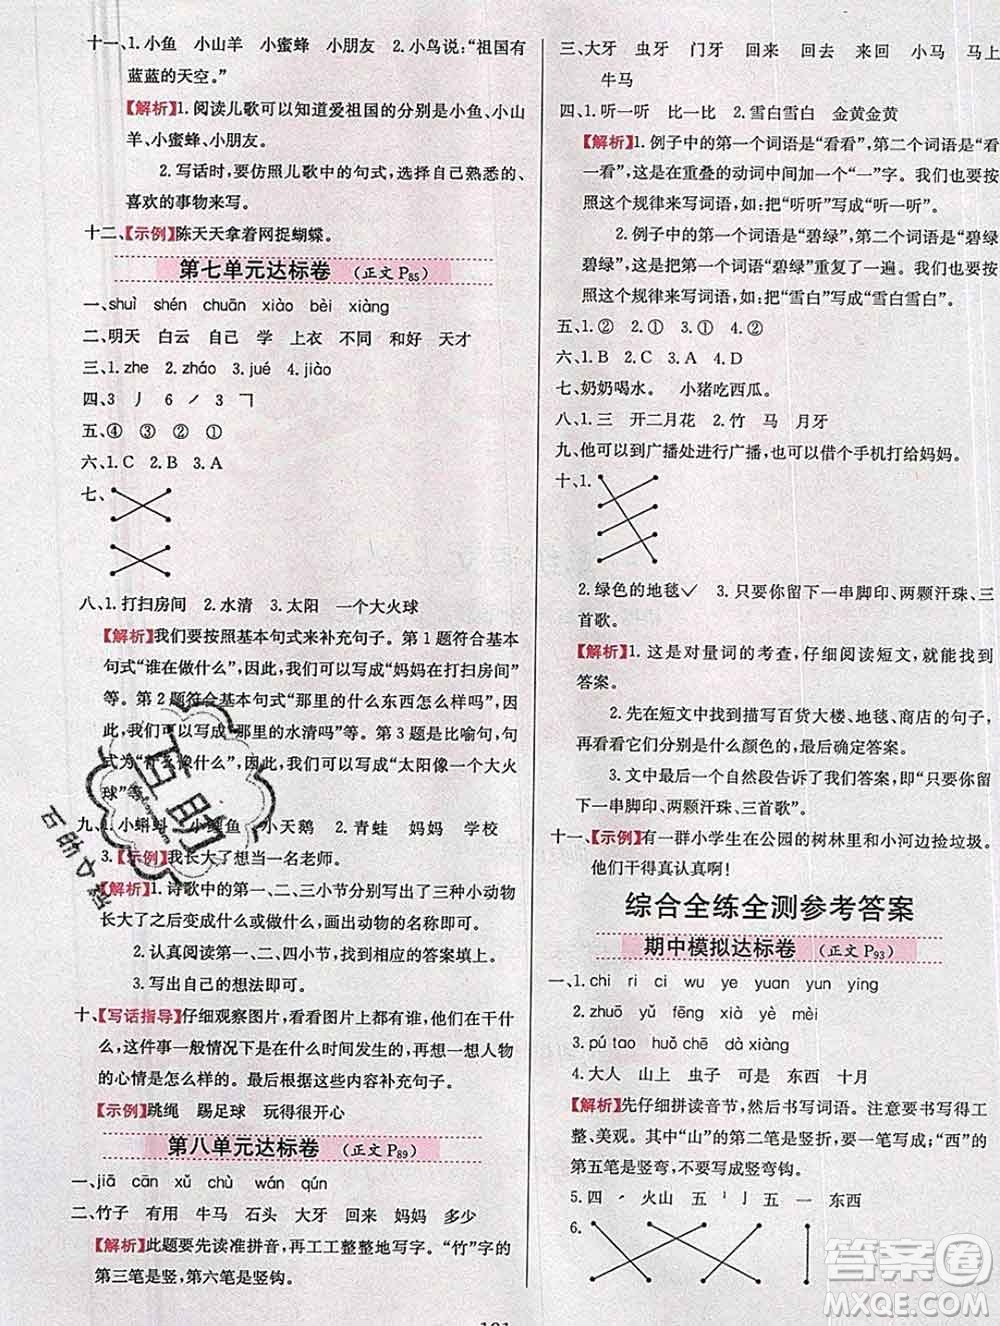 十一、1.小鱼　小山羊　小蜜蜂　小朋友　2.小鸟说：“祖国有
蓝蓝的天空。”
【解析】1.阅读儿歌可以知道爱祖国的分别是小鱼、小山
羊、小蜜蜂、小朋友。
2.写话时，要仿照儿歌中的句式，选择自己熟悉的、
喜欢的事物来写。
十二、【示例】陈天天拿着网捉蝴蝶。
第七单元达标卷　（正文P85）
一、shuǐ　shén　chuān　xiào　bèi　xiàng
二、明天　白云　自己　学　上衣　不同　和好　天才
三、1.zhe　2.zháo　3.jué　4.jiào
四、3　丿　6　㇒　3　㇕
五、④　④　③　②　①　①
六、1.C　2.B　3.A
七、
八、1.打扫房间　2.水清　3.太阳　一个大火球
【解析】我们要按照基本句式来补充句子。第1题符合基本
句式“谁在做什么”，因此，我们可以写成“妈妈在打扫房间”
等。第2题符合基本句式“那里的什么东西怎么样吗”，因
此，我们可以写成“那里的水清吗”等。第3题是比喻句，句
式为“什么像什么”，因此，我们可以写成“太阳像一个大火
球”等。
九、1.小蝌蚪　小鳄鱼　小天鹅　2.青蛙　妈妈　学校
3.【示例】我长大了想当一名老师。
【解析】1.诗歌中的第一、二、三小节分别写出了三种小动物
长大了之后变成什么或做什么，画出动物的名称即可。
2.认真阅读第一、二、四小节，找到相应的答案填上。
3.写出自己的想法即可。
十、【写话指导】仔细观察图片，看看图片上都有谁，他们在干什
么，这件事一般情况下是在什么时间发生的，再想一想人物
的心情是怎么样的。最后根据这些内容补充句子。
【示例】跳绳　踢足球　玩得很开心
第八单元达标卷　（正文P89）
一、jiā　cān　xǔ　chù　wán　qún
二、竹子　有用　牛马　石头　大牙　回来　妈妈　多少
【解析】此题要先读准拼音，再工工整整地写字。“竹”字的
第三笔是竖，第六笔是竖钩。
三、大牙　虫牙　门牙　回来　回去　来回　小马　马上
牛马
四、1.听一听　比一比　2.雪白雪白　金黄金黄
【解析】1.例子中的第一个词语是“看看”，第二个词语是“看
一看”，这是在重叠的动词中间加一个“一”字。我们也要按
照这个规律来写词语，如：把“听听”写成“听一听”。
2.例子中的第一个词语是“碧绿”，第二个词语是“碧绿
碧绿”，这是把第一个词语“碧绿”重复了一遍。我们也要按
照这个规律来写词语，如：把“雪白”写成“雪白雪白”。
五、1.②　2.①　3.①　4.②
六、1.B　2.C　3.A　4.D
七、奶奶喝水。　小猪吃西瓜。
八、1.三　开二月花　2.竹　马　月牙
九、他可以到广播处进行广播，也可以借个手机打给妈妈。
十、1.
2.绿色的地毯✓　3.只要你留下一串脚印、两颗汗珠、三
首歌。
【解析】1.这是对量词的考查，仔细阅读短文，就能找到
答案。
2.先在短文中找到描写百货大楼、地毯、商店的句子，
再看看它们分别是什么颜色的，最后确定答案。
3.文中最后一个自然段告诉了我们答案，即“只要你留
下一串脚印、两颗汗珠、三首歌”。
十一、【示例】有一群小学生在公园的树林里和小河边捡垃圾。
他们干得真认真啊！
综合全练全测参考答案
期中模拟达标卷　（正文P93）
一、1.chi　ri　ci　wu　ye　yuan　yun　ying
2.zhuō　yǔ　fēng　xià　yè　mèi
3.pú tao　huǒ chē　dà xiàng
4.大人　山上　虫子　可是　东西　十月
【解析】先仔细拼读音节，然后书写词语。注意要写得工
整、美观。其中“山”的第二笔是竖折，要一笔写成；“西”的
第五笔是竖弯，不能写成竖弯钩。
5.四　㇒　火山　五　亅　五　一　东西
6.
答案圈
MXQE.COM
互助